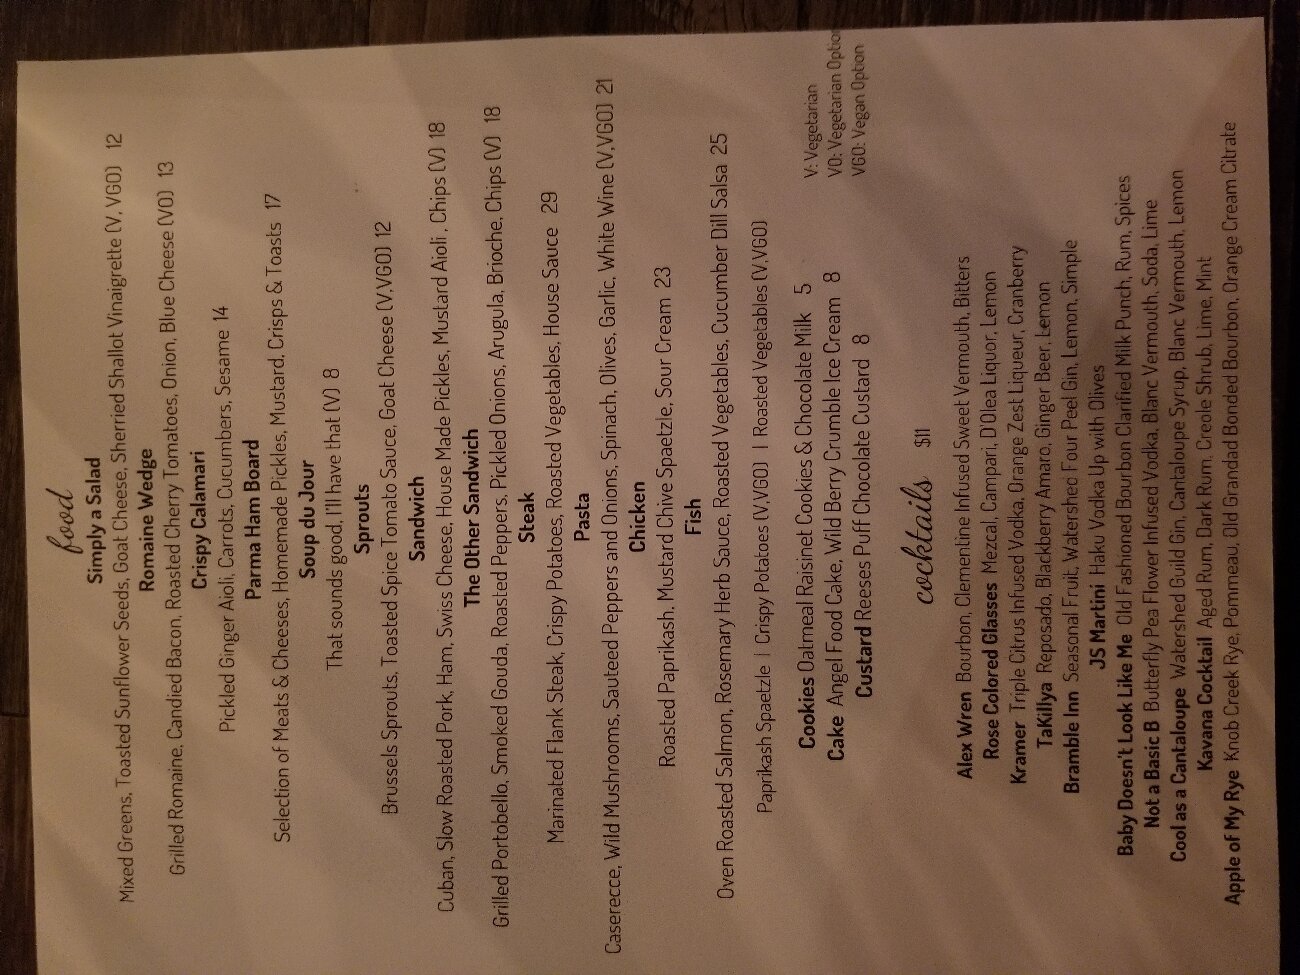 food
Simply a Salad
Mixed Greens, Toasted Sunflower Seeds, Goat Cheese, Sherried Shallot Vinaigrette (V, VGO) 12
Romaine Wedge
Grilled Romaine, Candied Bacon, Roasted Cherry Tomatoes, Onion, Blue Cheese (VO) 13
Crispy Calamari
Pickled Ginger Aioli, Carrots, Cucumbers, Sesame 14
Parma Ham Board
Selection of Meats & Cheeses, Homemade Pickles, Mustard, Crisps & Toasts 17
Soup du Jour
That sounds good, I'll have that (V) 8
Sprouts
Brussels Sprouts, Toasted Spice Tomato Sauce, Goat Cheese (V,VGO) 12
Sandwich
Cuban, Slow Roasted Pork, Ham, Swiss Cheese, House Made Pickles, Mustard Aioli , Chips (V) 18
The Other Sandwich
Grilled Portobello, Smoked Gouda, Roasted Peppers, Pickled Onions, Arugula, Brioche, Chips (V) 18
Steak
Marinated Flank Steak, Crispy Potatoes, Roasted Vegetables, House Sauce 29
Pasta
Caserecce, Wild Mushrooms, Sauteed Peppers and Onions, Spinach, Olives, Garlic, White Wine (V,VGO) 21
Chicken
Roasted Paprikash, Mustard Chive Spaetzle, Sour Cream 23
Fish
Oven Roasted Salmon, Rosemary Herb Sauce, Roasted Vegetables, Cucumber Dill Salsa 25
Paprikash Spaetzle | Crispy Potatoes (V,VGO) | Roasted Vegetables (V,VGO)
Cookies Oatmeal Raisinet Cookies & Chocolate Milk 5
Cake Angel Food Cake, Wild Berry Crumble Ice Cream 8
Custard Reeses Puff Chocolate Custard 8
V: Vegetarian
VO: Vegetarian Option
VGO: Vegan Option
cocktails $11
Alex Wren Bourbon, Clementine Infused Sweet Vermouth, Bitters
Rose Colored Glasses Mezcal, Campari, D'Olea Liquor, Lemon
Kramer Triple Citrus Infused Vodka, Orange Zest Liqueur, Cranberry
TaKillya Reposado, Blackberry Amaro, Ginger Beer, Lemon
Bramble Inn Seasonal Fruit, Watershed Four Peel Gin, Lemon, Simple
JS Martini Haku Vodka Up with Olives
Baby Doesn't Look Like Me Old Fashioned Bourbon Clarified Milk Punch, Rum, Spices
Not a Basic B Butterfly Pea Flower Infused Vodka, Blanc Vermouth, Soda, Lime
Cool as a Cantaloupe Watershed Guild Gin, Cantaloupe Syrup, Blanc Vermouth, Lemon
Kavana Cocktail Aged Rum, Dark Rum, Creole Shrub, Lime, Mint
Apple of My Rye Knob Creek Rye, Pommeau, Old Grandad Bonded Bourbon, Orange Cream Citrate